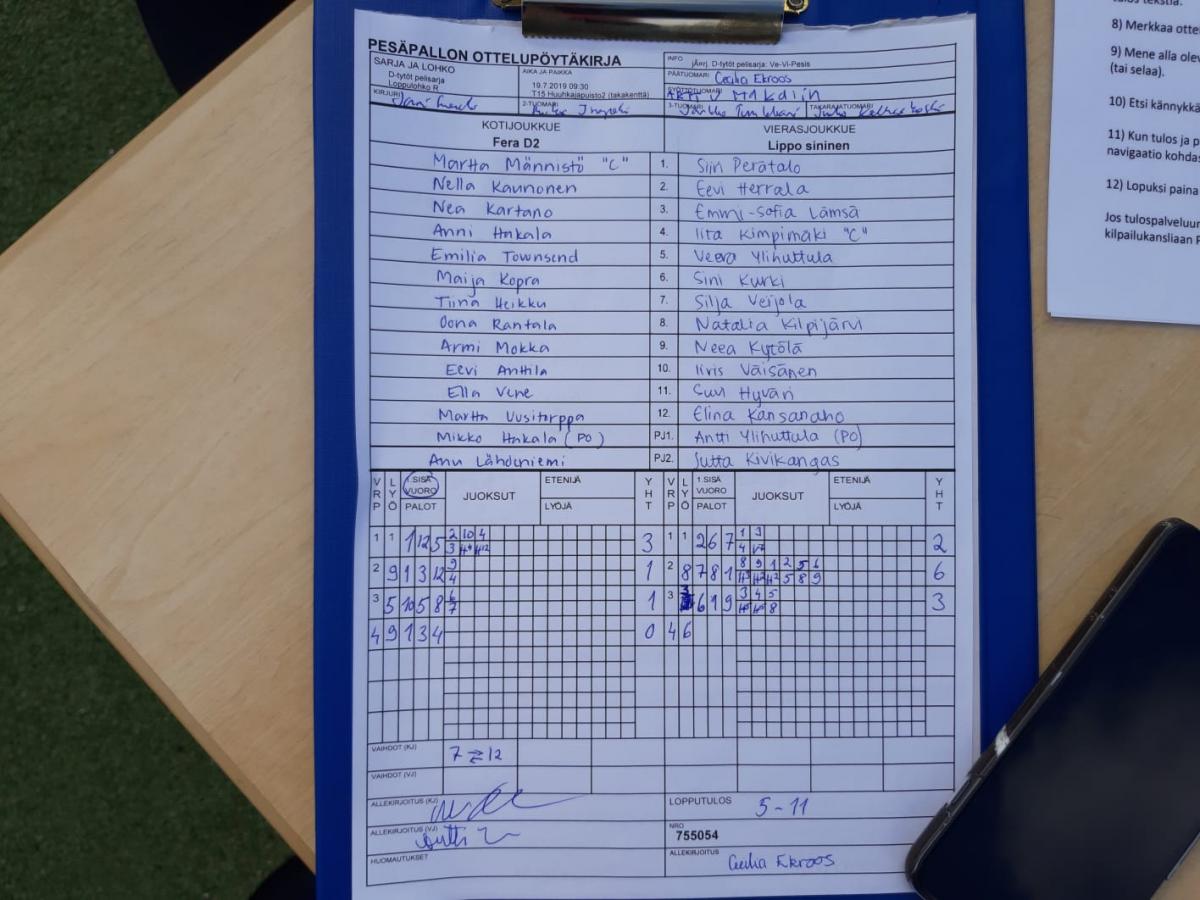 PESÄPALLON OTTELUPÖYTÄKIRJA
SARJA JA LOHKO
D-tytöt pelisarja
Loppulohko R
AIKA JA PAIKKA
19.7.2019 09:30
T15 Huuhkajapuisto2 (takakenttä)
INFO
jÄnrj. D-tytöt pelisarja: Ve-Vi-Pesis
PÄÄTUOMARI Cecilia Ekroos
SYÖTTÖTUOMARI
KIRJURI
2-TUOMARI
3-TUOMARI
TAKARAJATUOMARI
KOTIJOUKKUE
Fera D2
VIERASJOUKKUE
Lippo sininen
Martta Männistö "C" 1. Siiri Perätalo
Nella Kaunonen 2. Eevi Herrala
Nea Kartano 3. Emmi-Sofia Lämsä
Anni Hakala 4. Iita Kimpimäki "C"
Emilia Townsend 5. Veera Ylihuttula
Maija Kopra 6. Sini Kurki
Tiina Heikku 7. Silja Veijola
Oona Rantala 8. Natalia Kilpijärvi
Armi Mokka 9. Neea Kytölä
Eevi Anttila 10. Iiris Väisänen
Ella Vene 11. Suvi Hyväri
Martta Uusitorppa 12. Elina Kansanaho
Mikko Hakala (PO) PJ1. Antti Ylihuttula (PO)
Anu Lähdeniemi PJ2. Jutta Kivikangas
VRP LYÖ 1.SISÄ VUORO PALOT JUOKSUT ETENIJÄ LYÖJÄ YHT VRP LYÖ 1.SISÄ VUORO PALOT JUOKSUT ETENIJÄ LYÖJÄ YHT
2 10 4 1 3
1 1 1 12 5 3 1 1 2 6 7 2
9 8 9 1 2 5 6
2 9 1 3 12 4 1 2 8 7 8 1 5 8 9 6
6 3 4 5
3 5 10 5 8 7 1 3 6 1 9 8 3
4 9 1 3 4 0 4 6
VAIHDOT (KJ) 7 ⇄ 12
VAIHDOT (VJ)
ALLEKIRJOITUS (KJ)
LOPPUTULOS 5-11
ALLEKIRJOITUS (VJ)
NRO
755054
HUOMAUTUKSET
ALLEKIRJOITUS
Cecilia Ekroos
tulos tekstia.
8) Merkkaa otte
9) Mene alla olev
(tai selaa).
10) Etsi kännykkä
11) Kun tulos ja p
navigaatio kohdas
12) Lopuksi paina
Jos tulospalveluun
kilpailukansliaan P